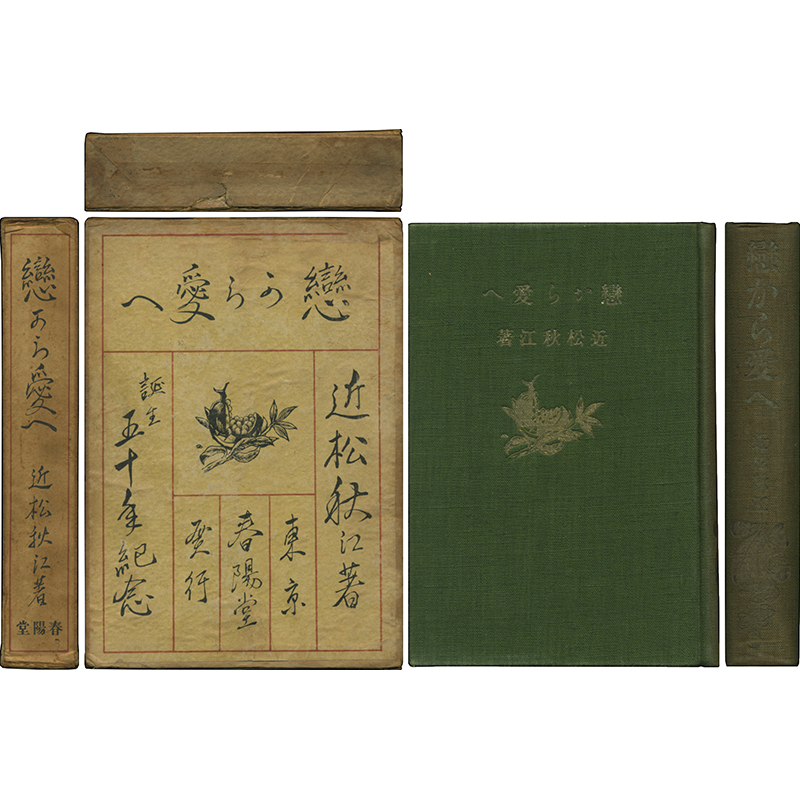 戀から愛へ
近松秋江著
春陽堂
戀から愛へ
近松秋江著
東京
春陽堂
發行
誕生五十年紀念
戀から愛へ
近松秋江著
戀から愛へ